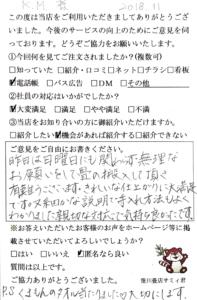 K.M. 様 2018.11
この度は当店をご利用いただきましてありがとうござ
いました。今後のサービスの向上のためにご意見を伺
っております。どうぞご協力をお願いいたします。
①今回何を見てご注文されましたか?(複数可)
□知っていた □紹介・口コミ □ネット □チラシ □看板
☑電話帳 □バス広告 □DM □その他
②社員の対応はいかがでしたか?
☑大変満足 □満足 □やや満足 □不満
③当店をお知り合いの方に御紹介いただけますか。
□紹介したい ☑機会があれば紹介する □紹介できない
ご意見をご自由にお書きください。
昨日は日曜日にも関わらず無理な
お願いをして畳の搬入して頂き
有難うございます。きれいな仕上がりに大満足
です。又来田かな説明で手入れ方法もよく
わかりました。親切な対応で気持ち良かったです。
※お答えいただいたお客様のお声をホームページ等に掲
載させていただいてよろしいでしょうか?
□はい □いいえ ☑匿名なら良い
質問は以上です。
ご協力ありがとうございました。
P.S くまモンのタオル当たりました。大切にします。